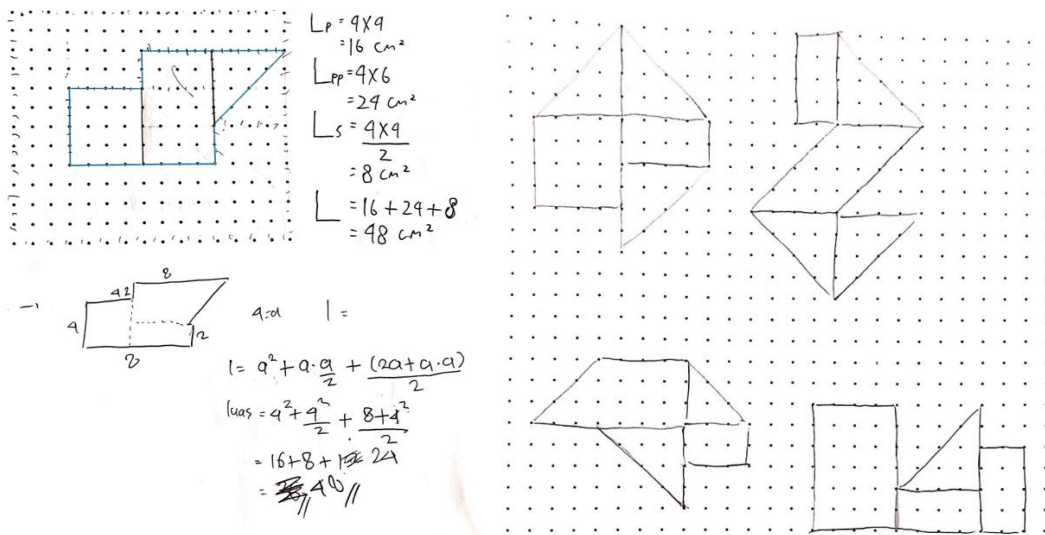 Lp = 4x4
= 16 cm²
Lpp = 4x6
= 24 cm²
Ls = 4x4
2
= 8 cm²
L = 16 + 24 + 8
= 48 cm²
8
4 2
4
2
8
4=a l =
l = a² + a·a/2 + (2a+a·a)/2
luas = 4² + 4²/2 + 8+4²/2
= 16 + 8 + 24
= 48 //